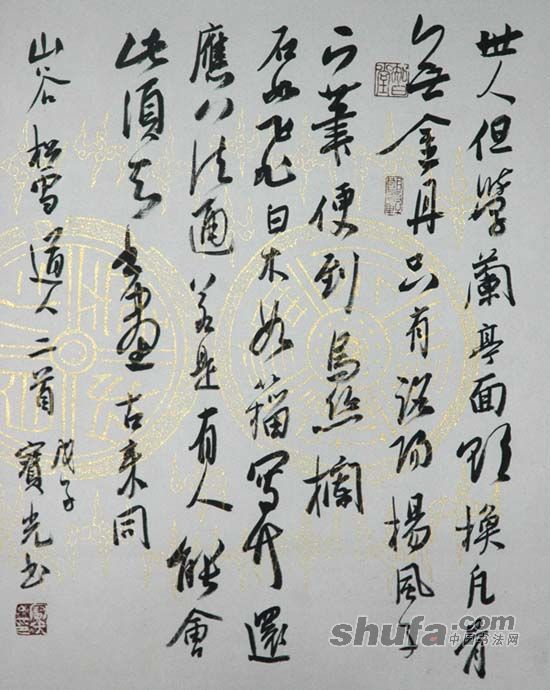 世人但學蘭亭面欲換凡骨
無金丹只有洛陽楊風子
下筆便到烏絲欄
石如飛白木如籀寫竹還
應八法通若是有人能會
此須知書畫古來同
山谷松雪道人二首
戊子
寶光書
shufa.com
中国书法网